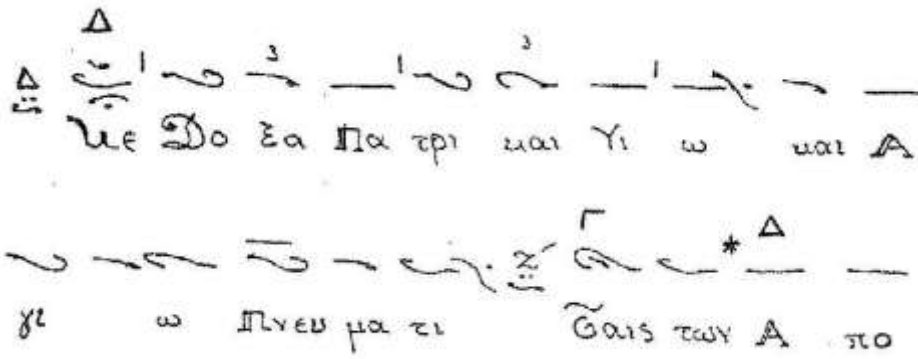 Δ
Δ 3 3
Κε Δο ξα Πα τρι και Υι ω και Α
Ζ Γ * Δ
γι ω Πνευ μα τι Ταις των Α πο